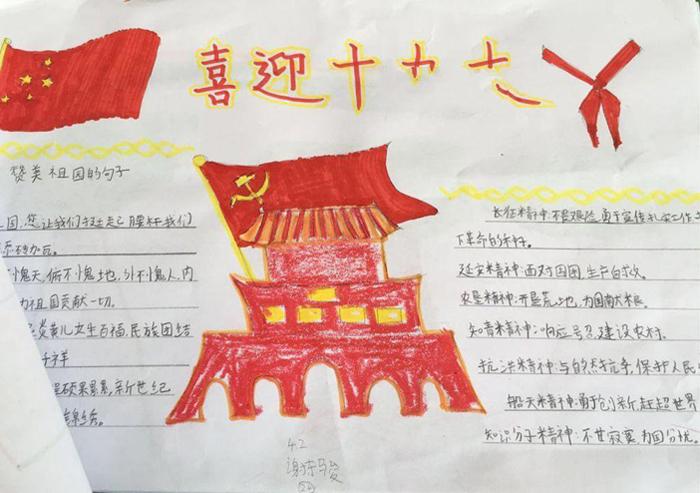 喜迎十九大
赞美祖国的句子
国,您让我们挺起腰杆我们
添砖加瓦。
不愧天,俯不愧地,外不愧人,内
为祖国贡献一切。
炎黄儿女生百福,民族团结
硕果累累,新世纪
长征精神:不畏艰险,勇于宣传扎实工作
下革命的种子。
延安精神:面对困困,生产自救。
农垦精神:开垦荒地,为国献大粮。
知青精神:响应号召,建设农村。
抗洪精神:与的天抗争,保护人民
航天精神:勇于创新,赶超世界
知识分子精神:不甘寂寞,为国分忧。
4.2